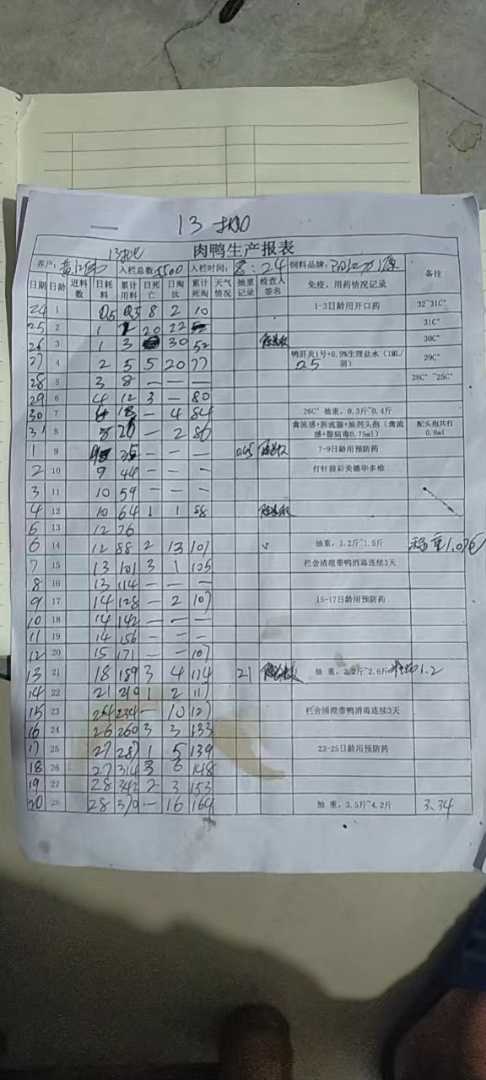 13批
肉鸭生产报表
养户: 13批 入栏总数 5500 入栏时间: 8:24 饲料品牌:
日期 日龄 进料数 日耗料 累计用料 日死亡 日淘汰 累计死淘 天气情况 抽重记录 检查人签名 免疫、用药情况记录 备注
24 1 0.5 0.5 8 2 10 1-3日龄用开口药 32~31C°
25 2 1 20 22 31C°
26 3 1 3 30 52 30C°
27 4 2 5 5 20 77 鸭肝炎1号+0.9%生理盐水(1ML/羽) 25 29C°
28 5 3 8 — — — 28C°~25C°
29 6 4 12 3 — 80
30 7 18 — 4 84 26C° 抽重,0.3斤~0.4斤
31 8 8 26 — 2 86 禽流感+浆流源+施列头孢(禽流感+腺病毒0.75ml) 配头孢共打0.8ml
1 9 35 — — — 7-9日龄用预防药
2 10 9 44 — — — 打针前后美德华多维
3 11 10 59 — — —
4 12 10 64 1 1 88
5 13 12 76
6 14 12 88 2 13 101 抽重,1.2斤~1.5斤
7 15 13 101 3 1 105 栏舍清理带鸭消毒连续3天
8 16 13 114 — — —
9 17 14 128 — 2 107 15-17日龄用预防药
10 18 14 142 — — —
11 19 14 156 — — —
12 20 15 171 — — 107
13 21 18 189 3 4 114 21 抽 重,2.2斤~2.6斤 1.2
14 22 21 210 1 2 117
15 23 24 234 — 10 127 栏舍清理带鸭消毒连续3天
16 24 26 260 3 3 133
17 25 27 287 1 5 139 23-25日龄用预防药
18 26 27 314 3 6 148
19 27 28 342 2 3 153
20 28 28 370 — 16 169 抽 重,3.5斤~4.2斤 3.34